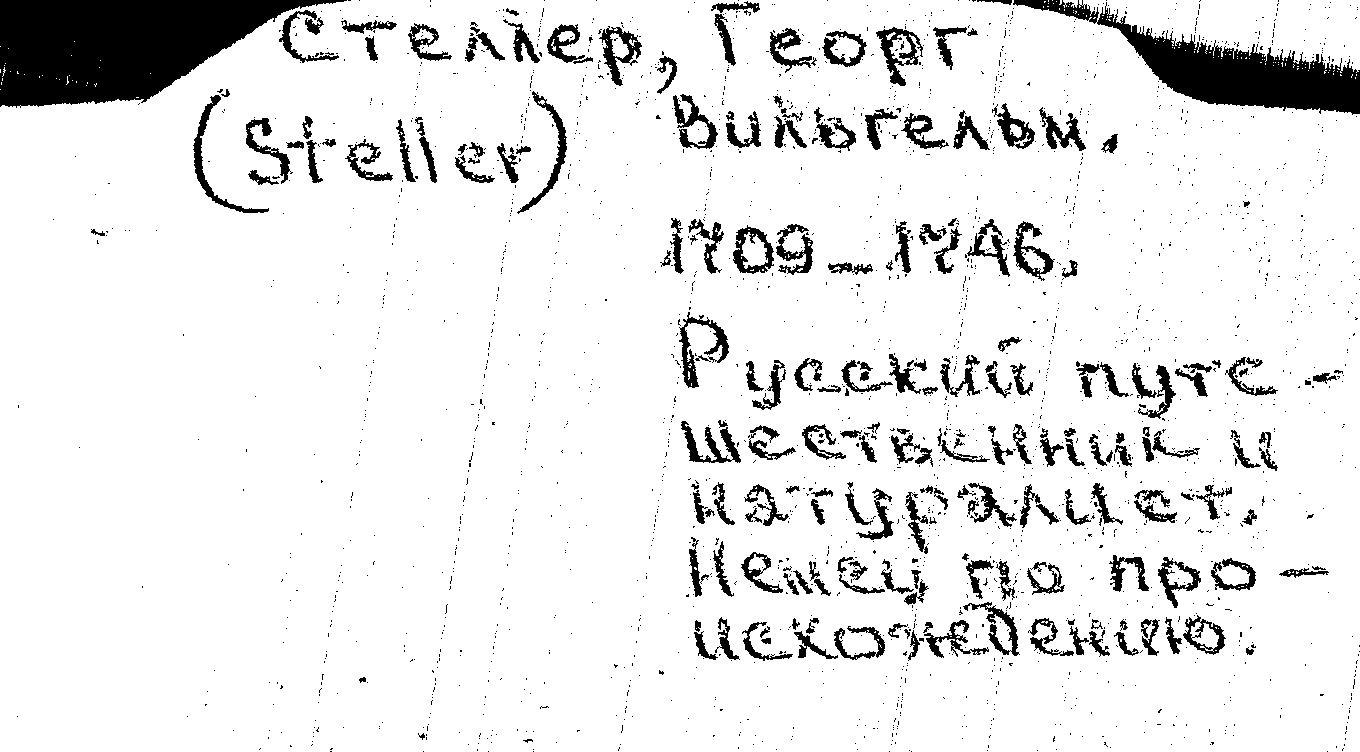 Стеллер, Георг
(Steller) Вильгельм.
1709–1746.
Русский путе-
шественник и
натуралист.
Немец по про-
исхождению.